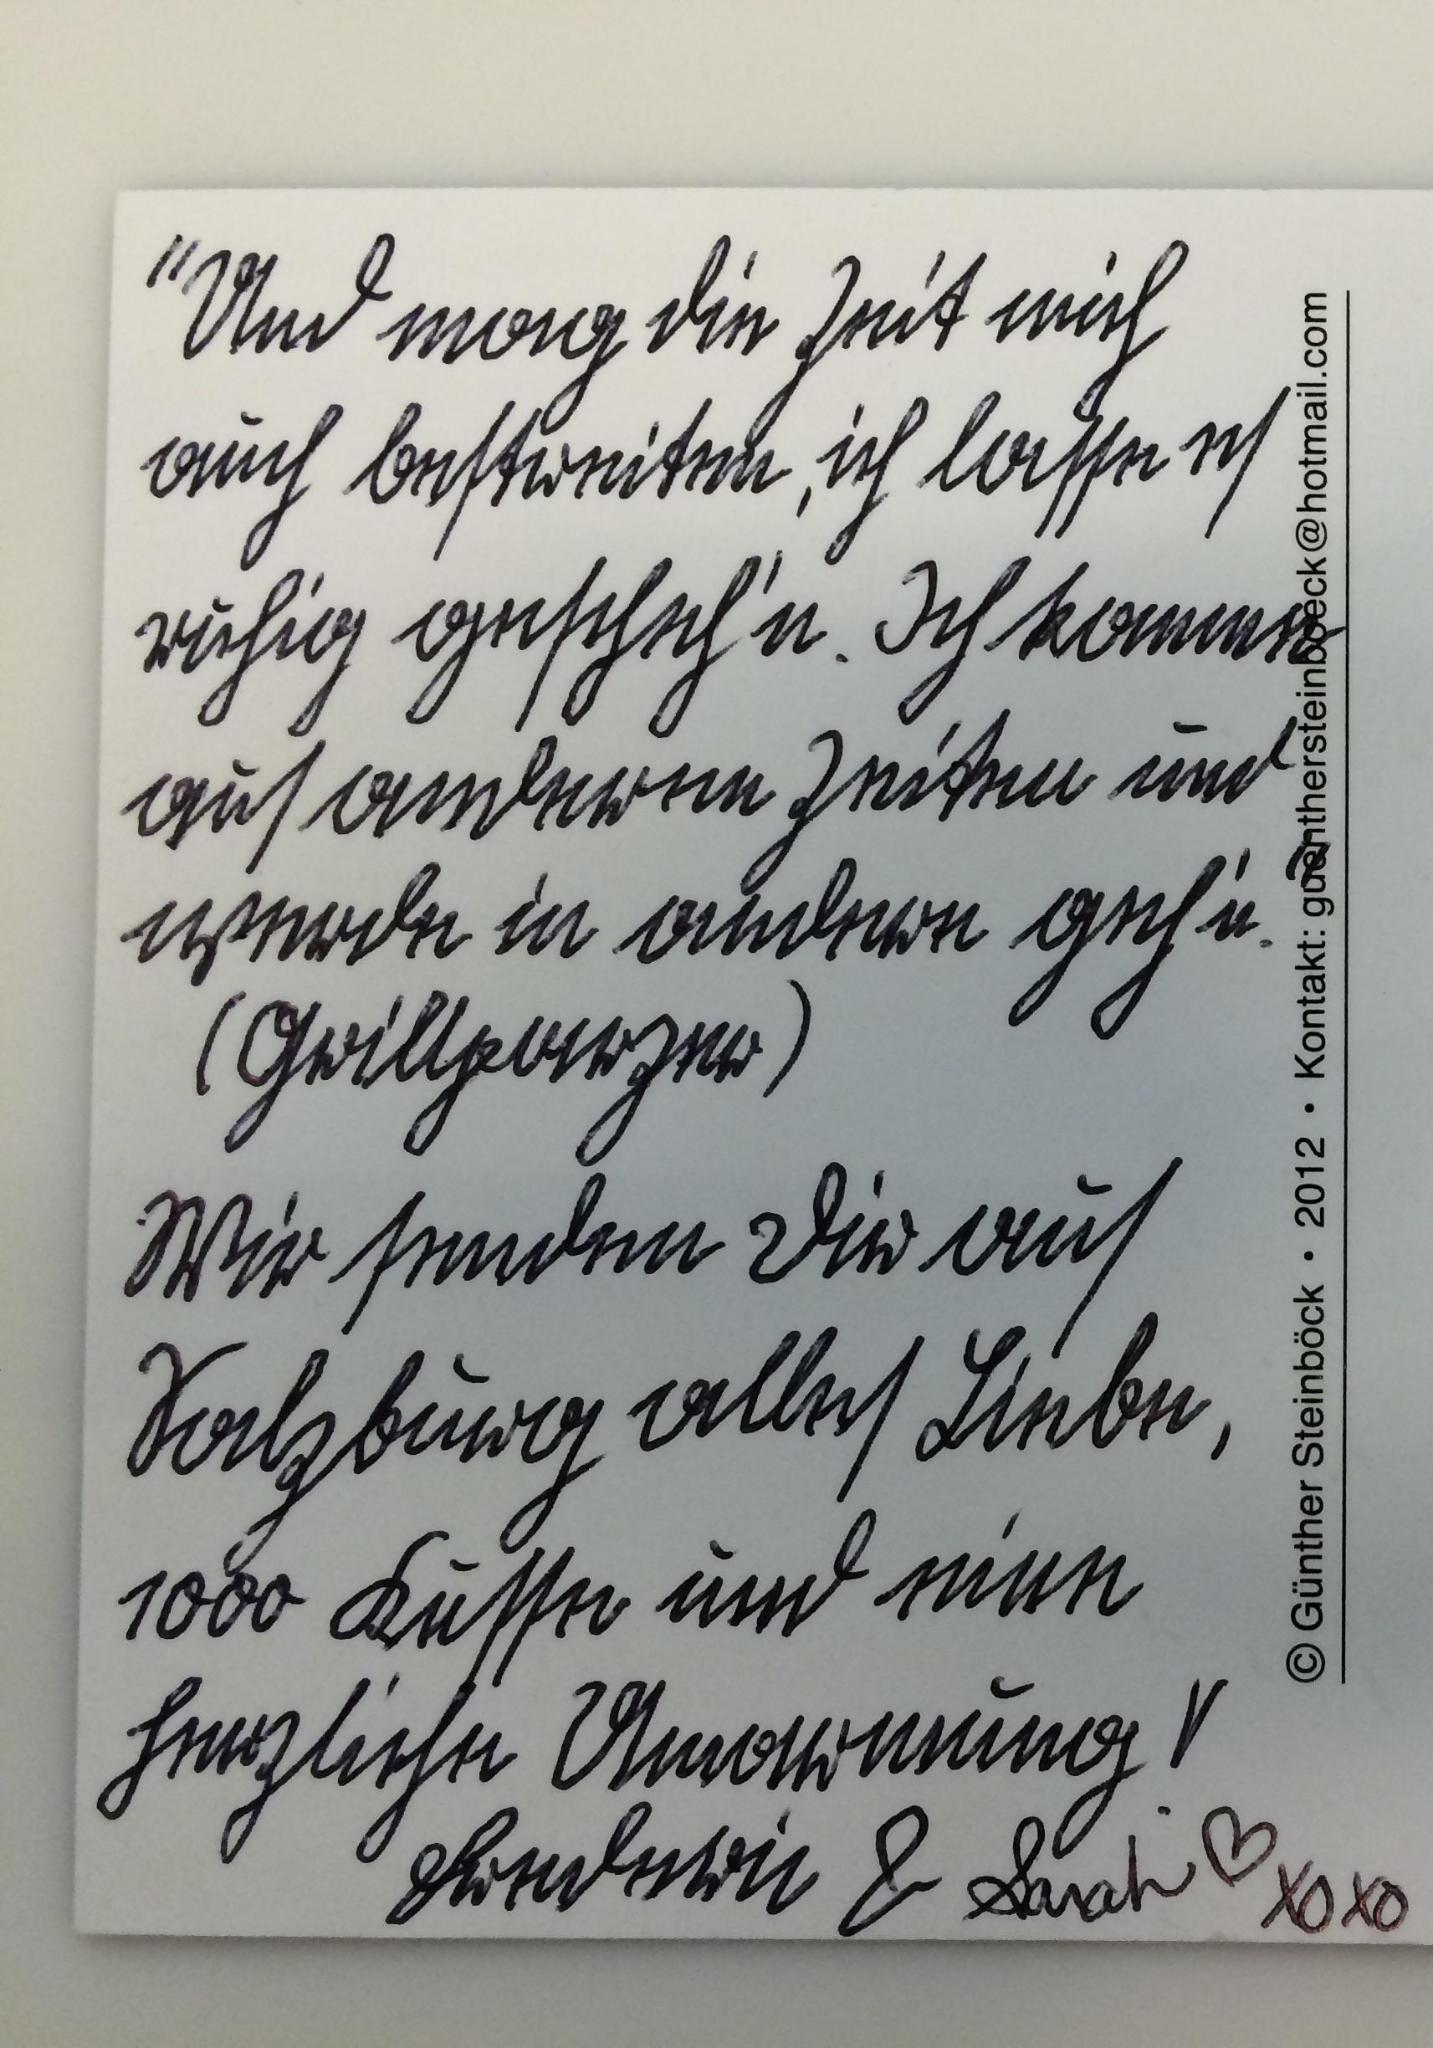 "Und mag die Zeit mich
auch bestreiten, ich lasse es
ruhig gescheh'n. Ich komme
aus anderen Zeiten und
werde in andere geh'n."
(Grillparzer)
Wir senden Dir aus
Salzburg alles Liebe,
1000 Küsse und eine
herzliche Umarmung!
& Sarah ♡ XOXO
© Günther Steinböck • 2012 • Kontakt: guenthersteinboeck@hotmail.com